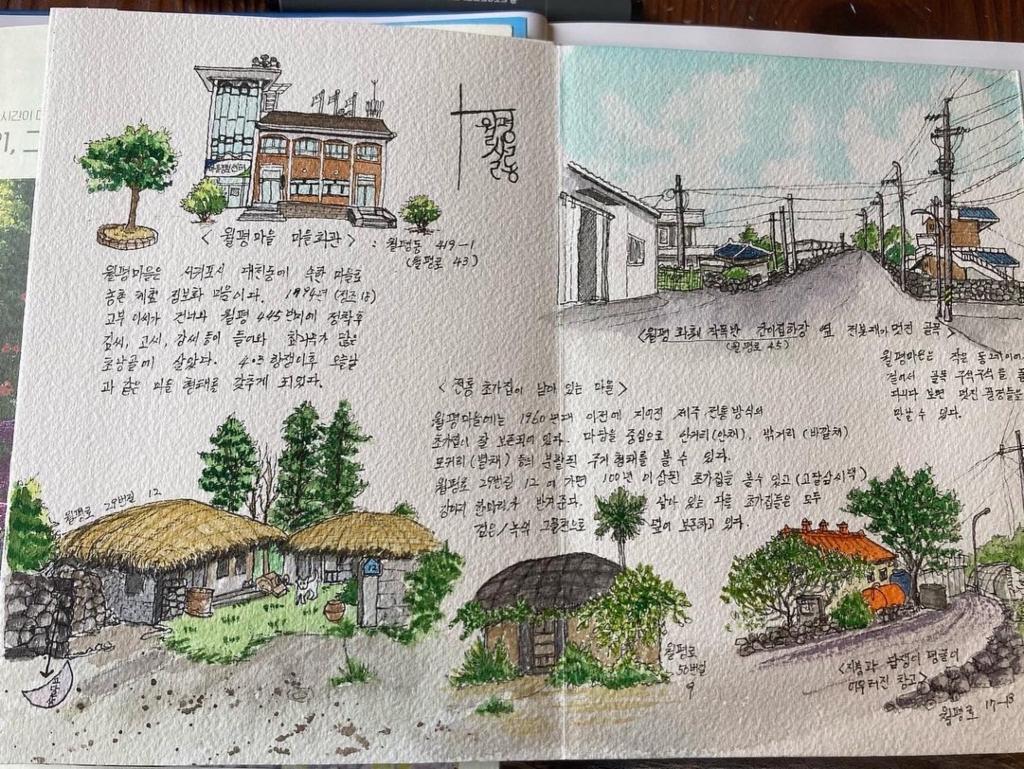 시간이
< 월평마을 마을회관 > : 월평동 419-1
(월평로 43)
월평마을은 서귀포시 대천동에 속한 마을로
농촌 체험 마을이다. 1894년
고부 이씨가 건너와 월평 445번지에 정착 후
김씨, 고씨, 강씨 등이 들어와
살았다. 4·3 항쟁이후 오늘날
과 같은 마을 형태를 갖추게 되었다.
<월평 화훼 작목반 옆 전봇대가 멋진 골목>
(월평로 45)
월평마을은 작은 동그라미
걸어서 골목 구석구석을
다니다 보면 멋진 풍경들을
만날 수 있다.
< 전통 초가집이 남아 있는 마을 >
월평마을에는 1960년대 이전에 지어진 제주 전통방식의
초가집이 잘 보존되어 있다. 마당을 중심으로 안거리(안채), 밖거리(바깥채)
모커리(별채) 등의 분할된 주거 형태를 볼 수 있다.
월평로 29번길 12 에 가면 100년 이상된 초가집을 볼 수 있고
강아지 한마리가 반겨준다. 살아 있는 마을 초가집들은 모두
검은/녹색 그물천으로 덮어 보존하고 있다.
월평로 29번길 12
12
월평로
50번길
9
<지붕과 담쟁이 덩굴이
어우러진 창고>
월평로 17-13